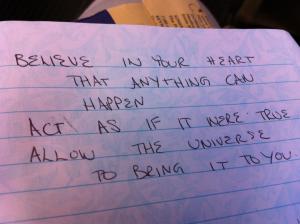 BELIEVE IN YOUR HEART
THAT ANYTHING CAN
HAPPEN
ACT AS IF IT WERE TRUE
ALLOW THE UNIVERSE
TO BRING IT TO YOU.